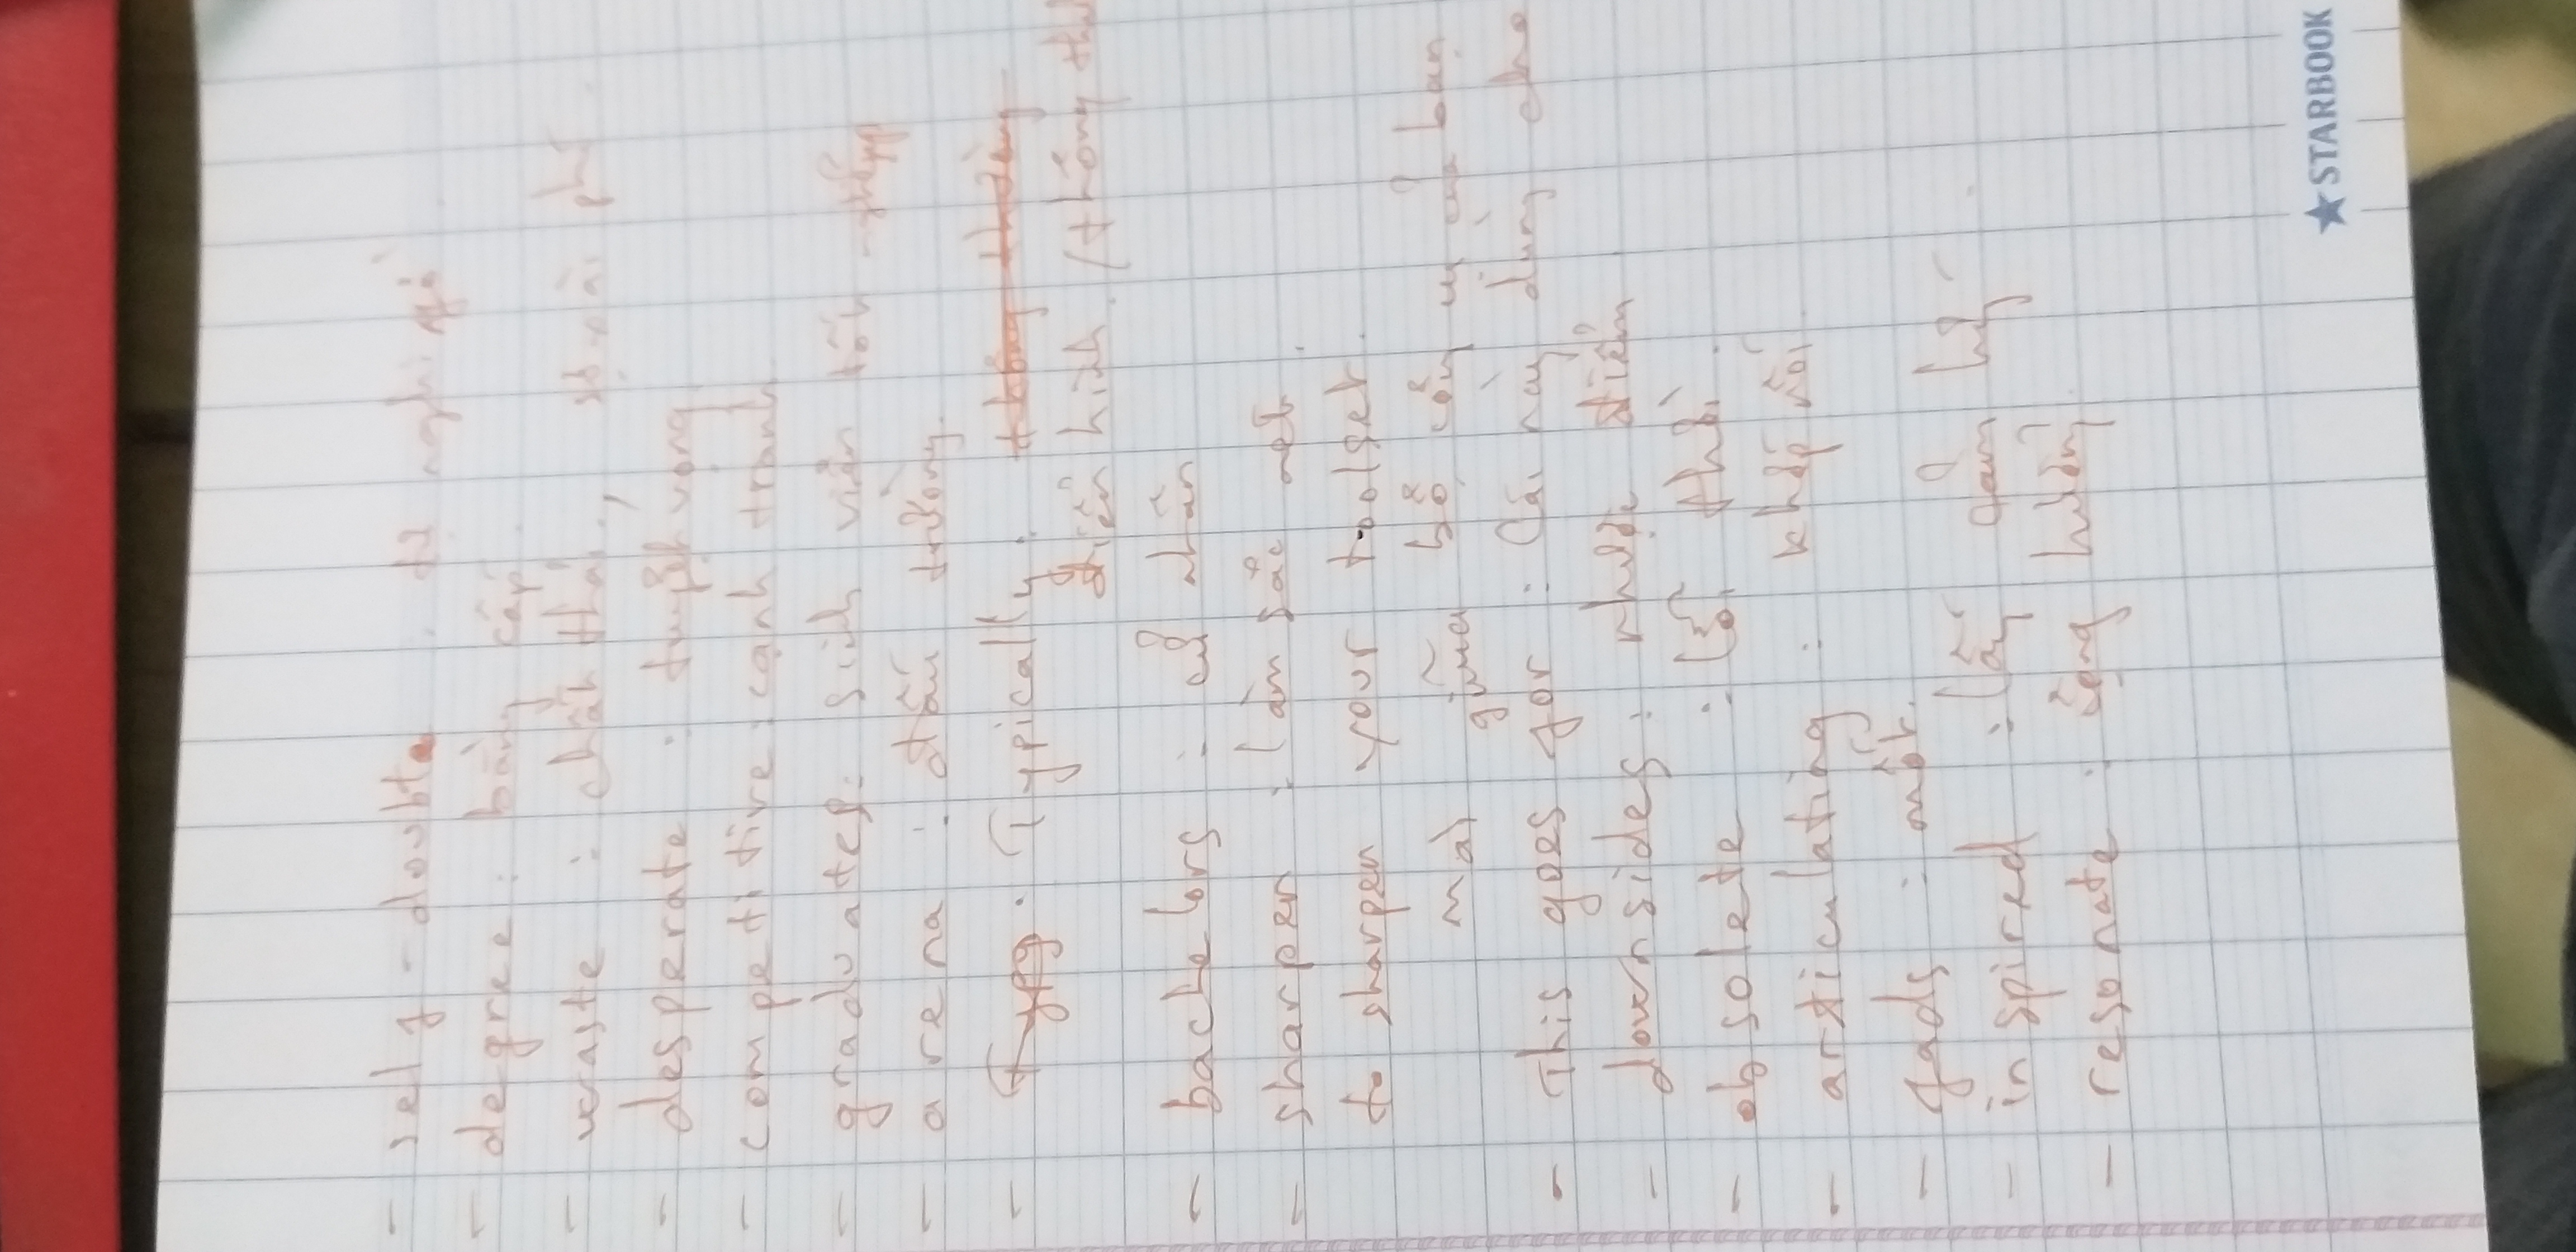 - self-doubt : tự nghi ngờ
- degree : bằng cấp
- waste : chất thải, sự lãng phí
- desperate : tuyệt vọng
- competitive : cạnh tranh
- graduates : sinh viên tốt nghiệp
- arena : đấu trường
- Typg. Typically : thông thường
điển hình. (thông
- bachelors : cử nhân
- sharpen : làm sắc nét.
to sharpen your toolset.
mài giũa bộ công cụ của bạn
- This goes for : Cái này dùng cho
- downsides : nhược điểm
- obsolete : lỗi thời.
- articulating : khớp nối
- fads : mốt.
- inspired : lấy cảm hứng
- resonate : cộng hưởng
STARBOOK